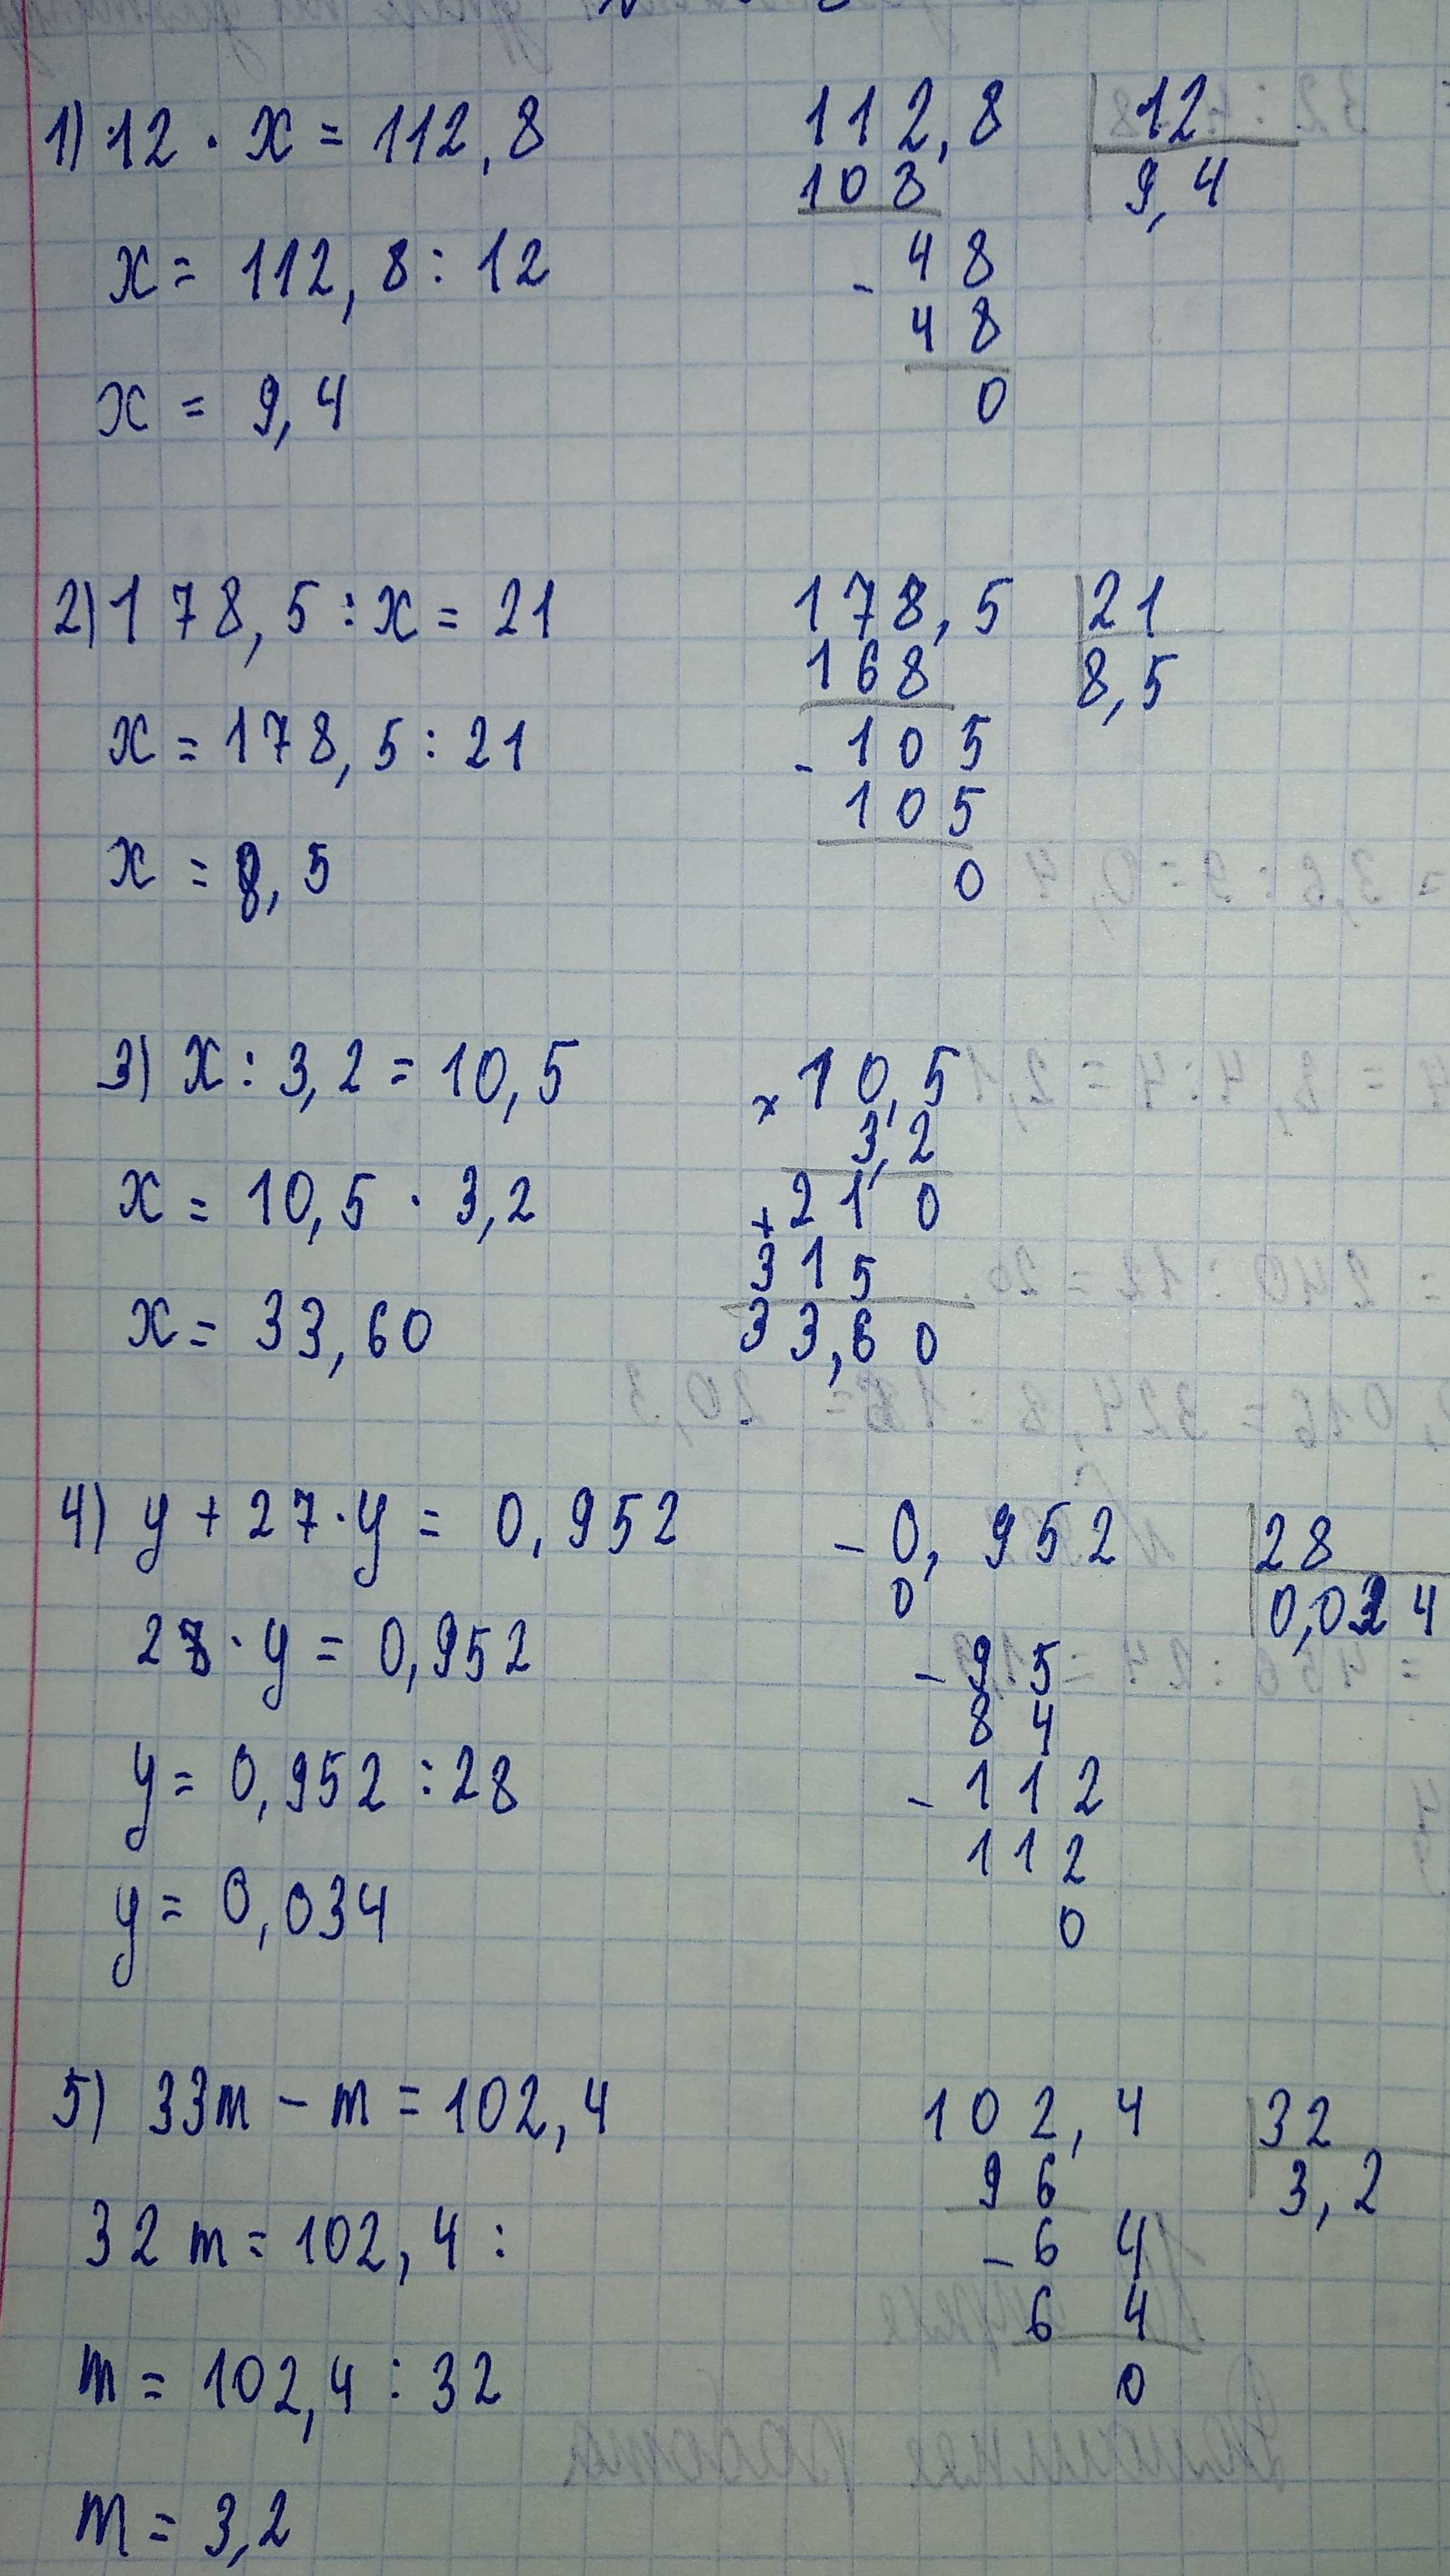 1) 12 · x = 112,8
x = 112,8 : 12
x = 9,4
112,8 12
108 9,4
- 48
48
0
2) 178,5 : x = 21
x = 178,5 : 21
x = 8,5
178,5 21
168 8,5
- 105
105
0
3) x : 3,2 = 10,5
x = 10,5 · 3,2
x = 33,60
× 10,5
3,2
+ 210
315
33,60
4) y + 27 · y = 0,952
28 · y = 0,952
y = 0,952 : 28
y = 0,034
- 0,952 28
0 0,034
- 95
84
- 112
112
0
5) 33m - m = 102,4
32m = 102,4 :
m = 102,4 : 32
m = 3,2
102,4 32
96 3,2
- 64
64
0